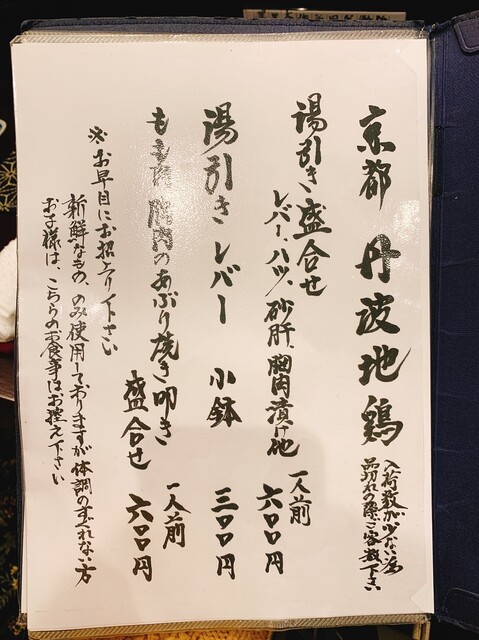 京都 丹波地鶏
入荷数が少ない為
品切れの際ご容赦下さい
湯引き盛合せ
レバー、ハツ、砂肝、胸肉漬け地
一人前
六〇〇円
湯引きレバー 小鉢 三〇〇円
もも肉 胸肉のあぶり焼き叩き
盛合せ
一人前
六〇〇円
※お早目にお招上り下さい
新鮮なもの、のみ使用しておりますが体調のすぐれない方
お子様は、こちらのお食事はお控え下さい